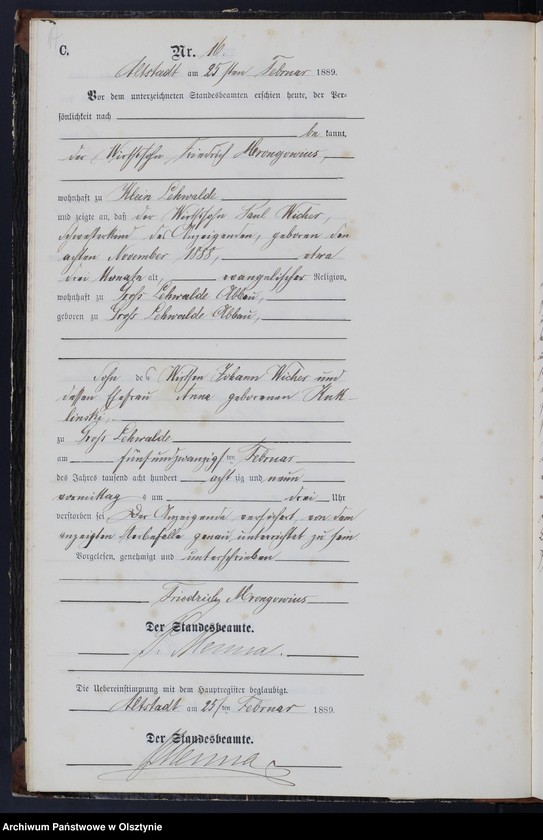 C.
Nr. 16.
Altstadt am 25sten Februar 1889.
Vor dem unterzeichneten Standesbeamten erschien heute, der Per-
sönlichkeit nach
be kannt,
der Wirthssohn Friedrich Mrongowius,
wohnhaft zu Klein Lehwalde
und zeigte an, daß der Wirthssohn Paul Wicher,
Schwesterkind des Anzeigenden, geboren den
achten November 1888, etwa
drei Monate alt, evangelischer Religion,
wohnhaft zu Groß Lehwalde Abbau,
geboren zu Groß Lehwalde Abbau,
Sohn des Wirthen Johann Wicher und
dessen Ehefrau Anna geborenen Kuk-
linski,
zu Groß Lehwalde
am fünfundzwanzigsten Februar
des Jahres tausend acht hundert achtzig und neun
vormittags um drei Uhr
verstorben sei. Der Anzeigende versichert, von dem
angezeigten Sterbefalle genau unterrichtet zu sein
Vorgelesen, genehmigt und unterschrieben
Friedrich Mrongowius
Der Standesbeamte.
Die Uebereinstimmung mit dem Hauptregister beglaubigt.
Altstadt am 25sten Februar 1889.
Der Standesbeamte.
Archiwum Państwowe w Olsztynie